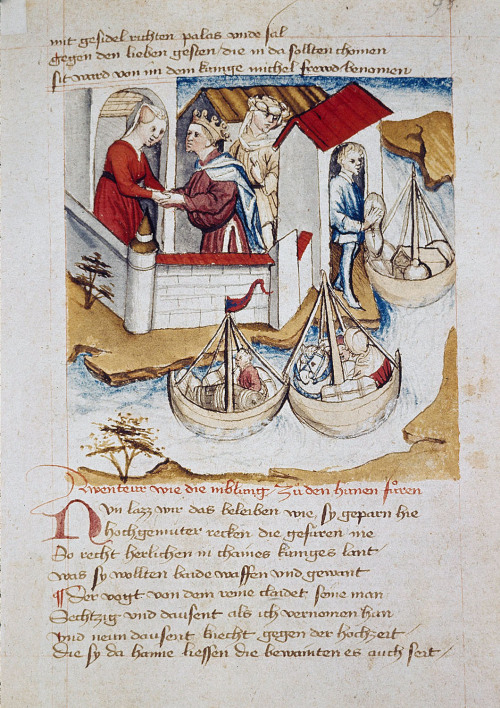 mit gesidel richten palas vnde sal
gegen den lieben gesten die in da sollten chomen
sit ward von im dem kunige michel frewd benomen
Awenteur wie die niblung zu den hunen fůren
Nvn lazz wir das beleiben wie sy geparn hie
hochgemuter recken die gefuren nie
So recht herlichen in chaines kuniges lant
was sy wollten baide waffen vnd gewant
Der vogt von dem reine claidet seine man
Sechtzig vnd dausent als ich vernomen han
vnd neun dausent knecht gegen der hochzeit
die sy da haime liessen die bewainten es auch seit